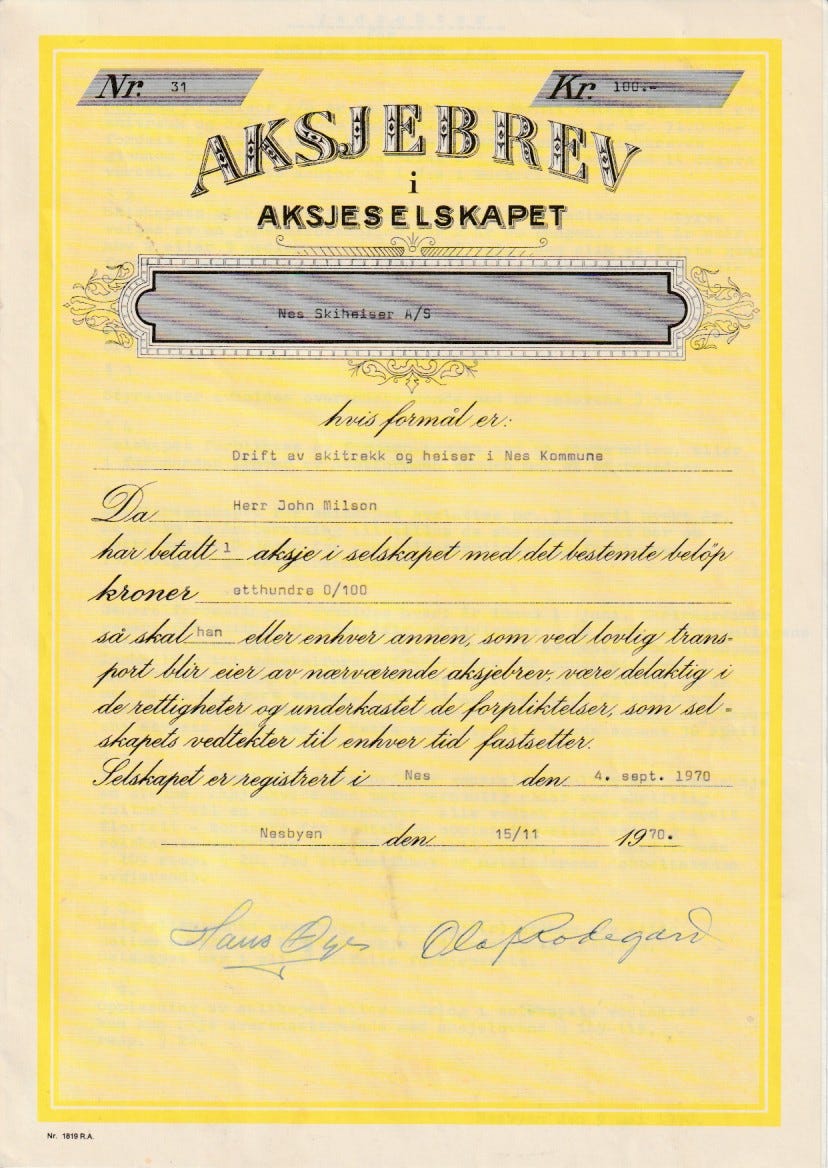 Nr. 31
Kr. 100.-
AKSJEBREV
i
AKSJESELSKAPET
Nes Skiheiser A/S
hvis formål er:
Drift av skitrekk og heiser i Nes Kommune
Da Herr John Milson
har betalt 1 aksje i selskapet med det bestemte beløp
kroner etthundre 0/100
så skal han eller enhver annen, som ved lovlig trans-
port blir eier av nærværende aksjebrev, være delaktig i
de rettigheter og underkastet de forpliktelser, som sel-
skapets vedtekter til enhver tid fastsetter.
Selskapet er registrert i Nes den 4. sept. 1970
Nesbyen den 15/11 1970.
Hans Olaf Rodegard
Nr. 1819 R.A.